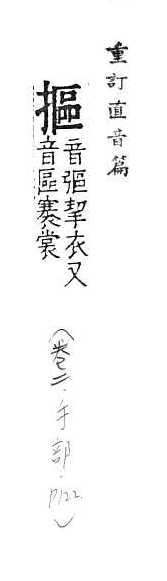 重訂直音篇
摳音彄挈衣又
音區褰裳
（卷二．手部．P122）